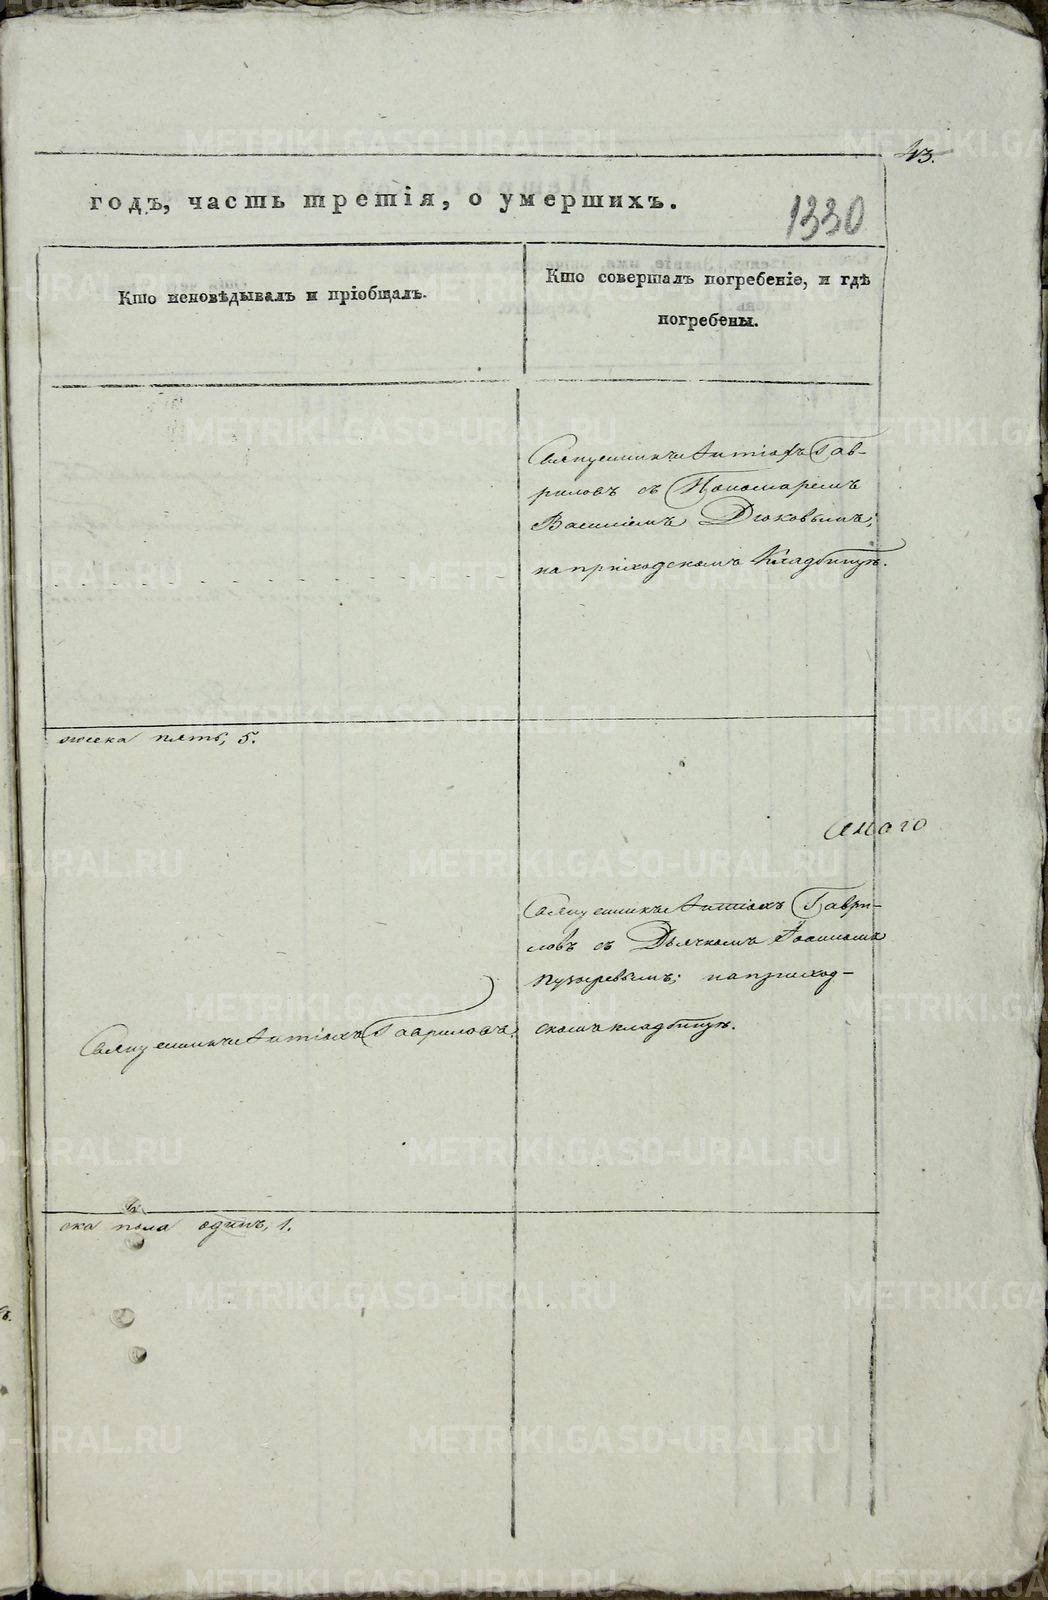 43.
годъ, часть третія, о умершихъ.
1330
Кто исповѣдывалъ и пріобщалъ.
Кто совершалъ погребеніе, и гдѣ
погребены.
Священникъ Антіохъ Гав-
риловъ съ Пономаремъ
Василіемъ Дюковымъ;
на приходскомъ Кладбищѣ.
жеска пять, 5.
Священникъ Антіохъ Гаври-
ловъ съ Дьячкомъ Іоанномъ
Пузыревымъ; на приход-
Священникъ Антіохъ Гавриловъ.
скомъ кладбищѣ.
ска пола одинъ, 1.
METRIKI.GASO-URAL.RU